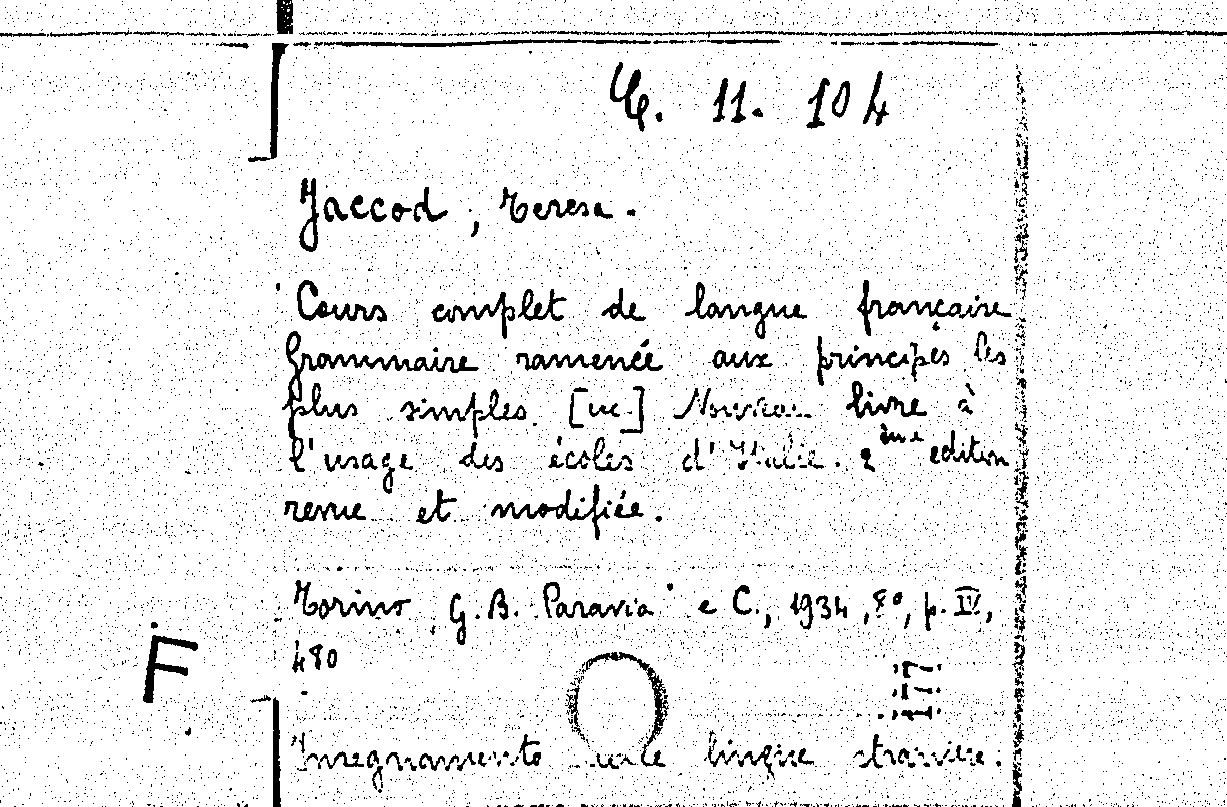 C. 11. 104
Jaccod, Teresa.
Cours complet de langue française
Grammaire ramenée aux principes les
plus simples. [ecc.] Nouveau livre à
l'usage des écoles d'Italie. 2ème edition
revue et modifiée.
Torino, G. B. Paravia e C., 1934, 8º, p. IV,
480
F
Insegnamento lingue straniere.